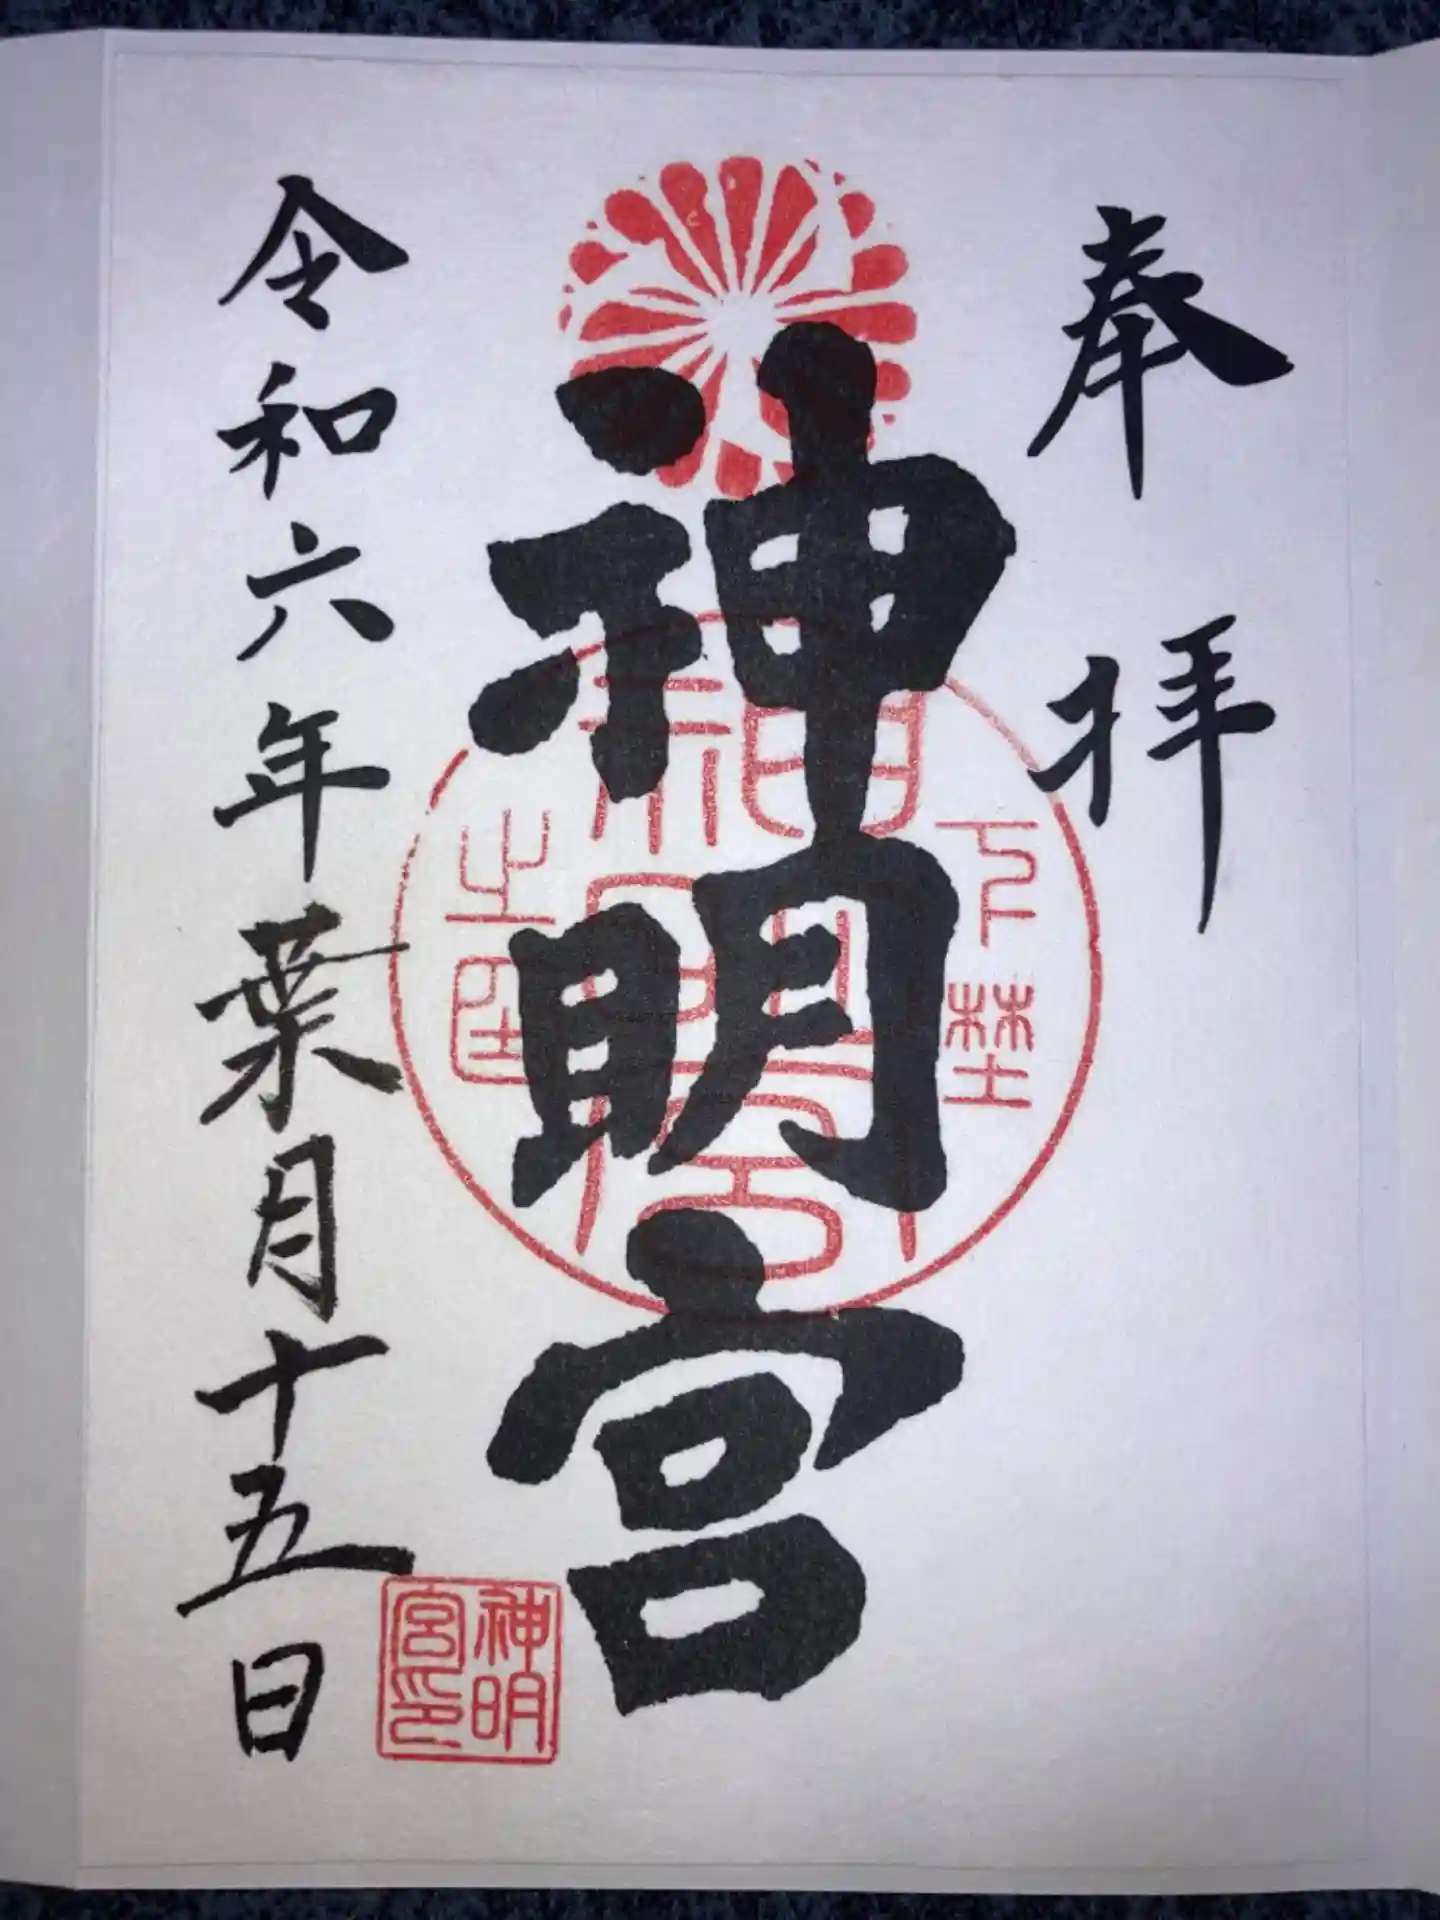 奉拝
神明宮
下野
神明宮
令和六年葉月十五日
神明
宮印